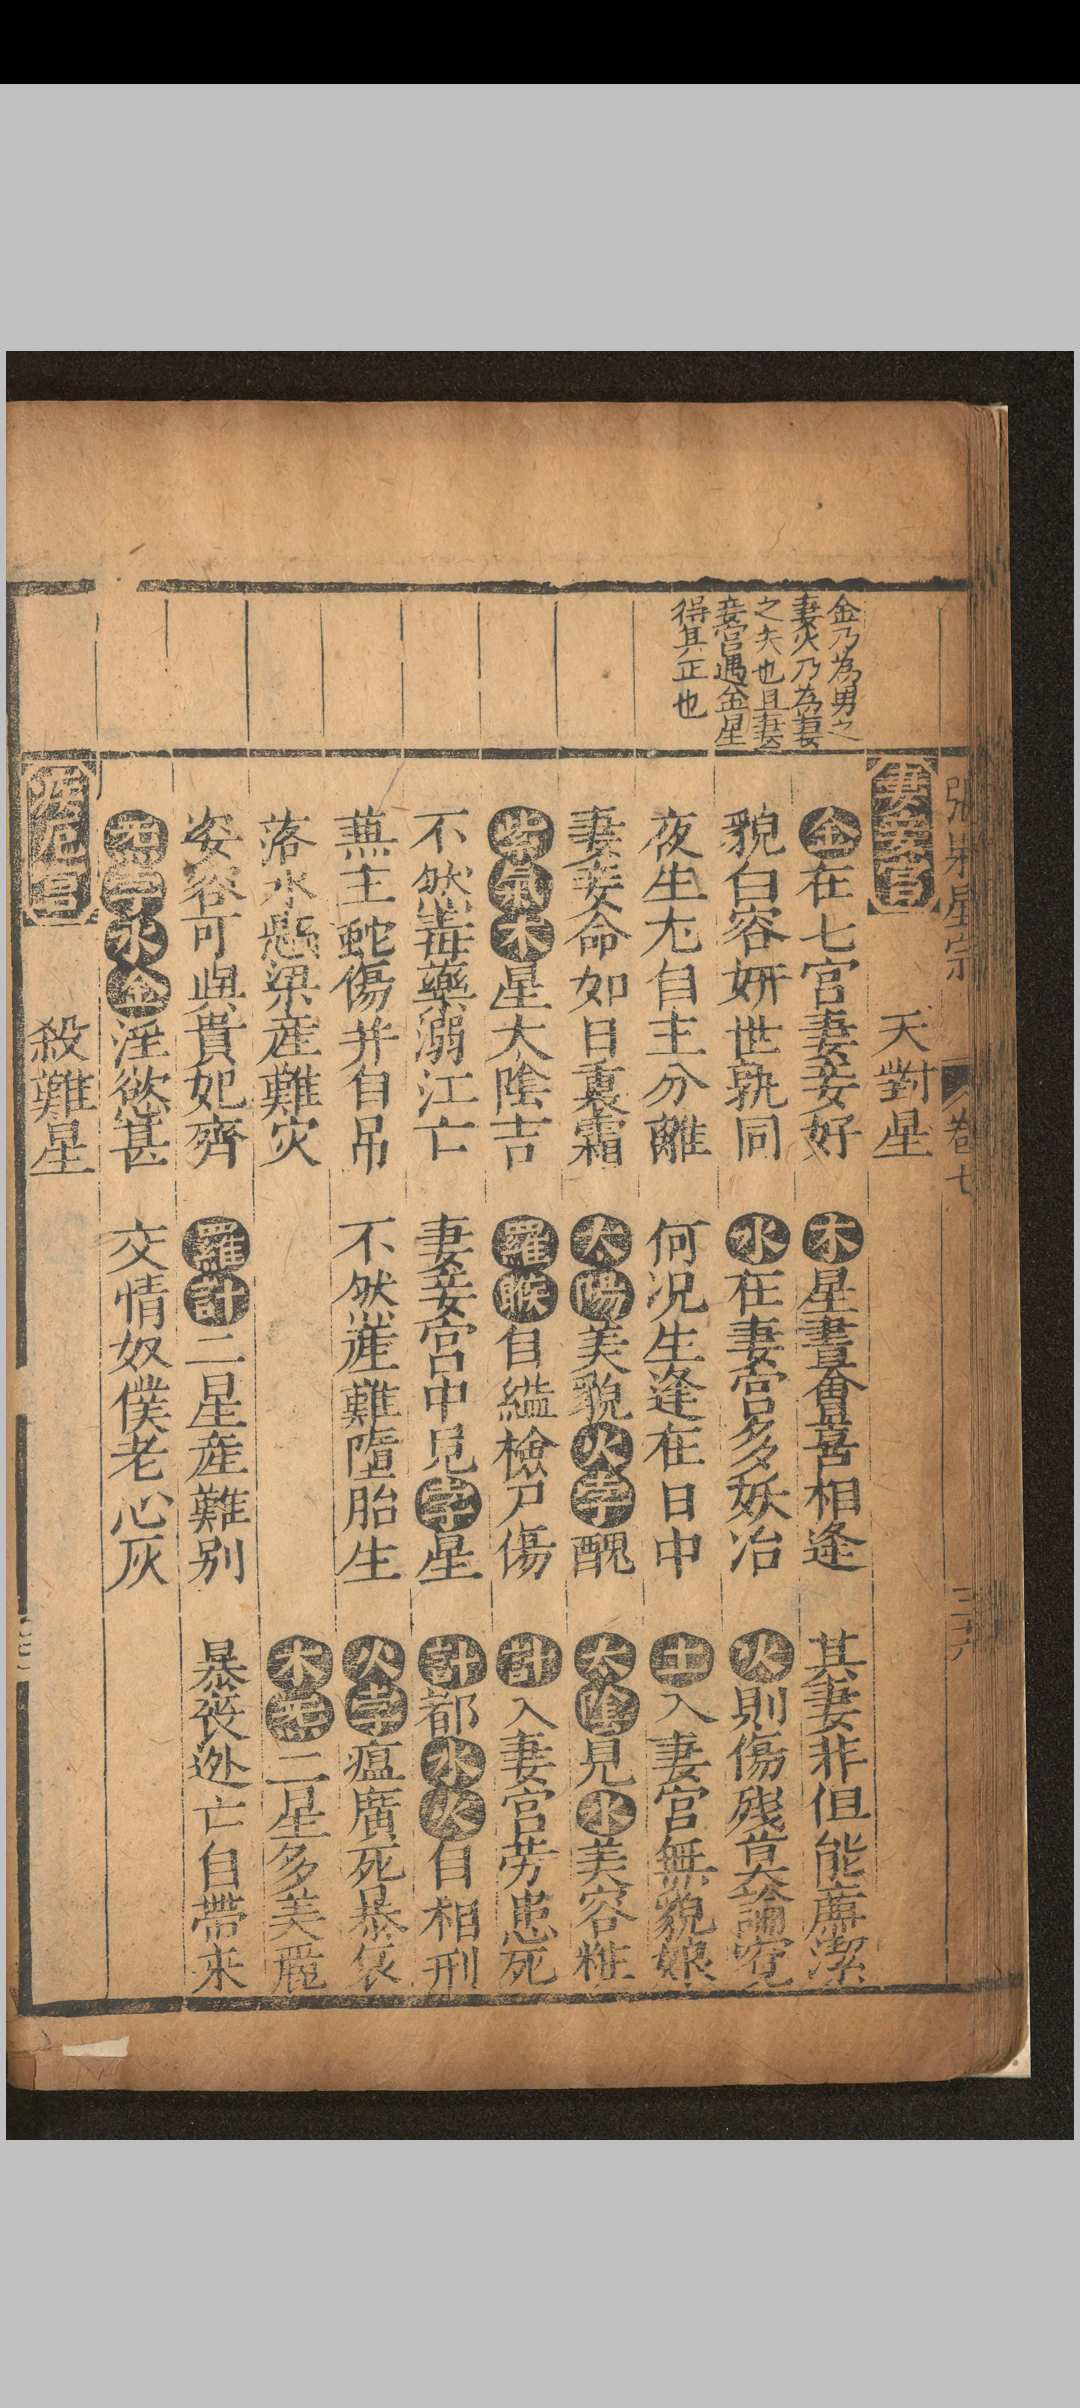 張果星宗
卷七
三六
妻妾宮 天對星
金乃為男之
妻火乃為妻
之夫也且妻
妾宮遇金星
得其正也
金在七宮妻妾好 木星晝會喜相逢 其妻非但能廉潔
貌白容妍世孰同 水在妻宮多妖冶 火則傷殘莫論寃
夜生尢自主分離 何况生逢在日中 土入妻宮無貌娘
妻妾命如日裏霜 太陽美貌火孛醜 太陰見水美容粧
紫氣木星大陰吉 羅睺自縊檢尸傷 計入妻宮劳患死
不然毒藥溺江亡 妻妾宮中見孛星 計都水火自相刑
蕪主蛇傷并自吊 不然産難墮胎生 火孛瘟廣死暴
落水懸梁産難灾 木 二星多美麗
姿容可與貴妃齊 羅計二星産難别 暴喪逃亡自帶來
四字水金淫慾甚 交情奴僕老心灰
疾厄宮 殺難星